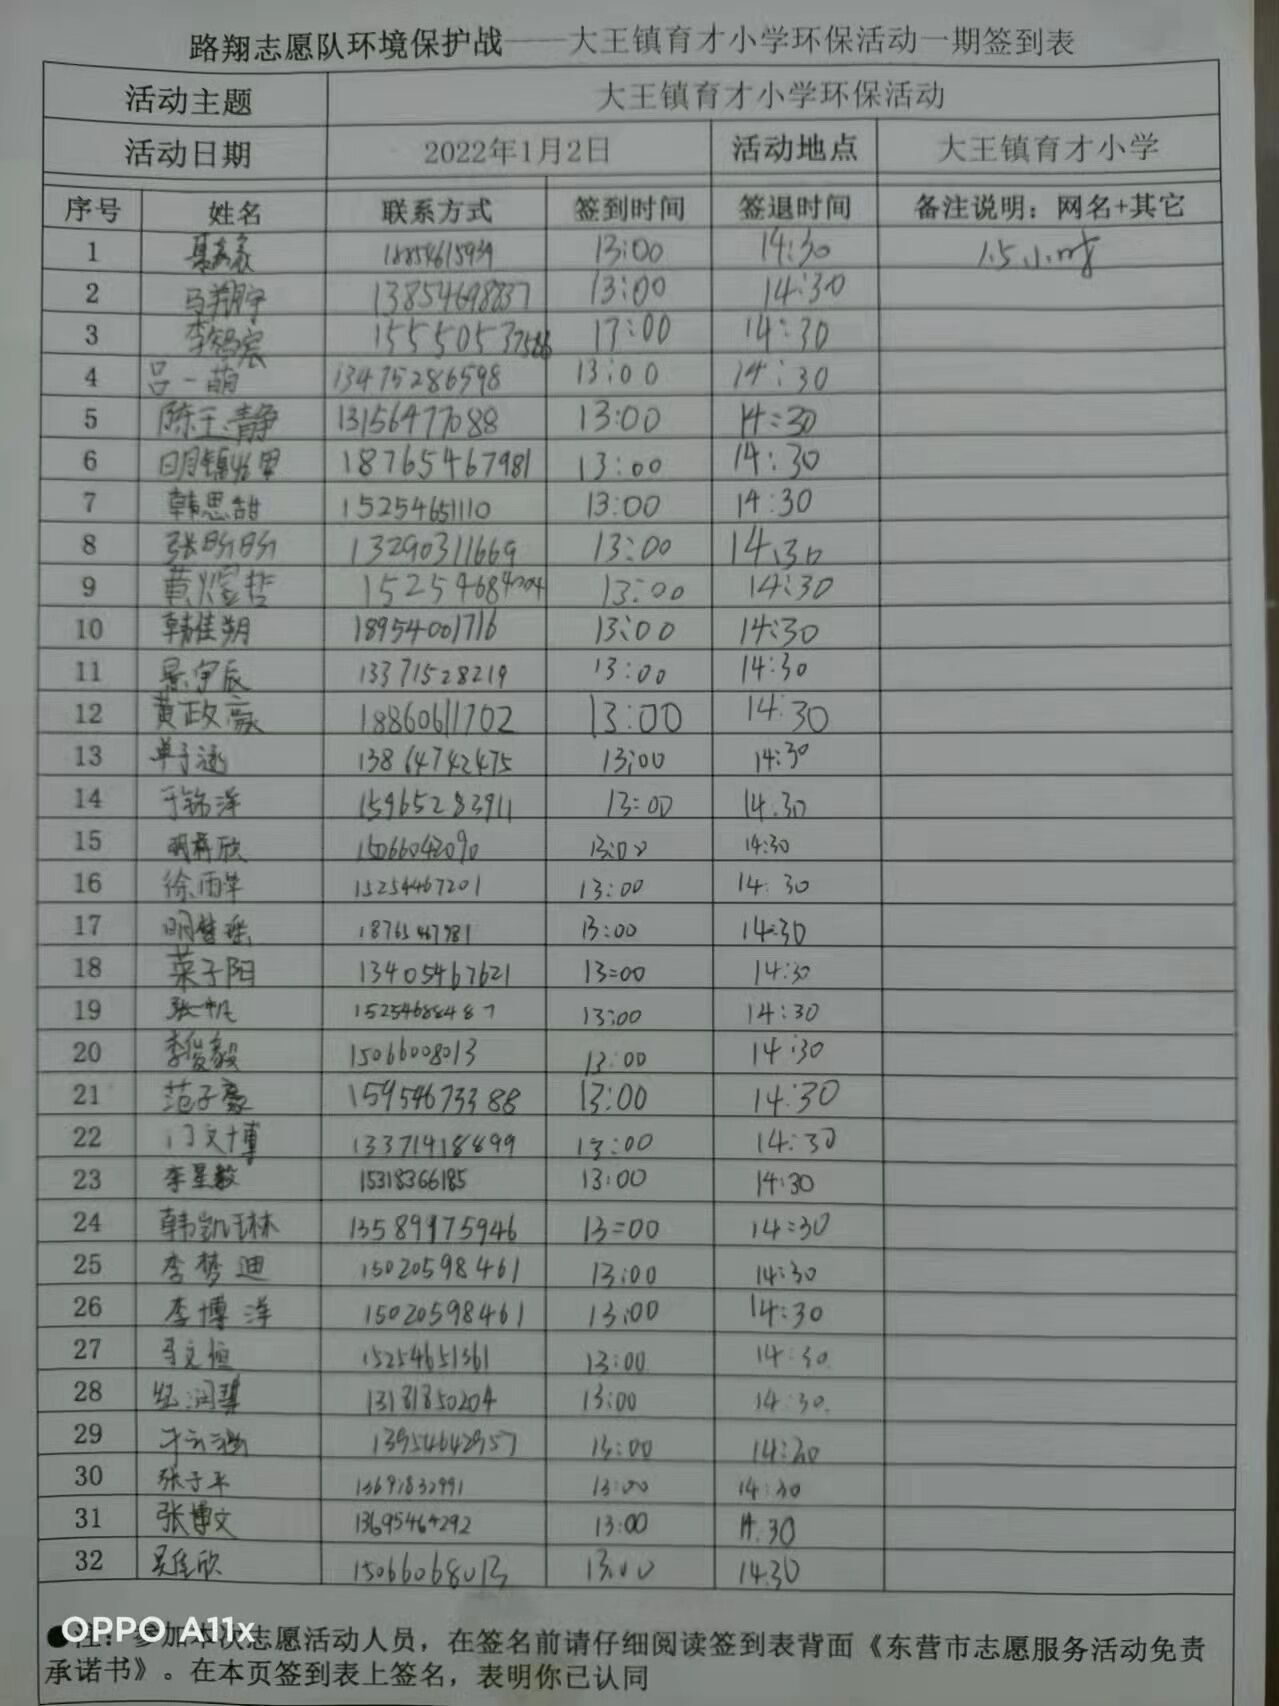 路翔志愿队环境保护战——大王镇育才小学环保活动一期签到表
活动主题 大王镇育才小学环保活动
活动日期 2022年1月2日 活动地点 大王镇育才小学
序号 姓名 联系方式 签到时间 签退时间 备注说明：网名+其它
1 18854615939 13:00 14:30 1.5小时
2 马翔宇 13854698837 13:00 14:30
3 15550537586 13:00 14:30
4 吕一萌 13475286598 13:00 14:30
5 陈玉静 13156477088 13:00 14:30
6 18765467981 13:00 14:30
7 韩思甜 15254651110 13:00 14:30
8 张盼盼 13290311669 13:00 14:30
9 黄煜哲 15254684004 13:00 14:30
10 韩佳朔 18954001716 13:00 14:30
11 13371528219 13:00 14:30
12 黄政豪 18860611702 13:00 14:30
13 单子涵 13864742475 13:00 14:30
14 于铭洋 15965283911 13:00 14:30
15 15066042090 13:00 14:30
16 15254467201 13:00 14:30
17 18765467981 13:00 14:30
18 菜子阳 13405467621 13=00 14:30
19 张一帆 15254688487 13:00 14:30
20 李俊毅 15066008013 13:00 14:30
21 范子豪 15954673388 13:00 14:30
22 门文博 13371418899 13:00 14:30
23 李星毅 15318366185 13:00 14:30
24 韩凯琳 13589975946 13=00 14:30
25 李梦迪 15020598461 13:00 14:30
26 李博洋 15020598461 13:00 14:30
27 马文恒 15254651361 13:00 14:30
28 13181850204 13:00 14:30
29 13954642957 13:00 14:30
30 张子平 13:00 14:30
31 张博文 13695464292 13:00 14.30
32 吴佳欣 15066068013 13:00 14.30
OPPO A11x
●注：参加本次志愿活动人员，在签名前请仔细阅读签到表背面《东营市志愿服务活动免责
承诺书》。在本页签到表上签名，表明你已认同